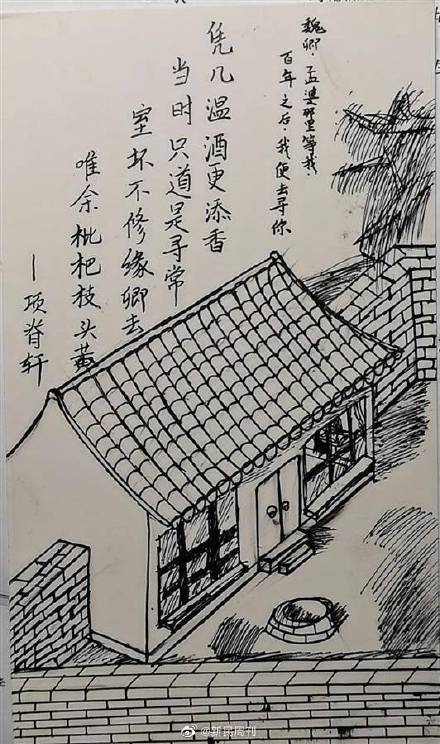 魏卿·孟婆那里等我
百年之后·我便去寻你
凭几温酒更添香
当时只道是寻常
室坏不修缘卿去
唯余枇杷枝头黄
—项脊轩
@新民周刊